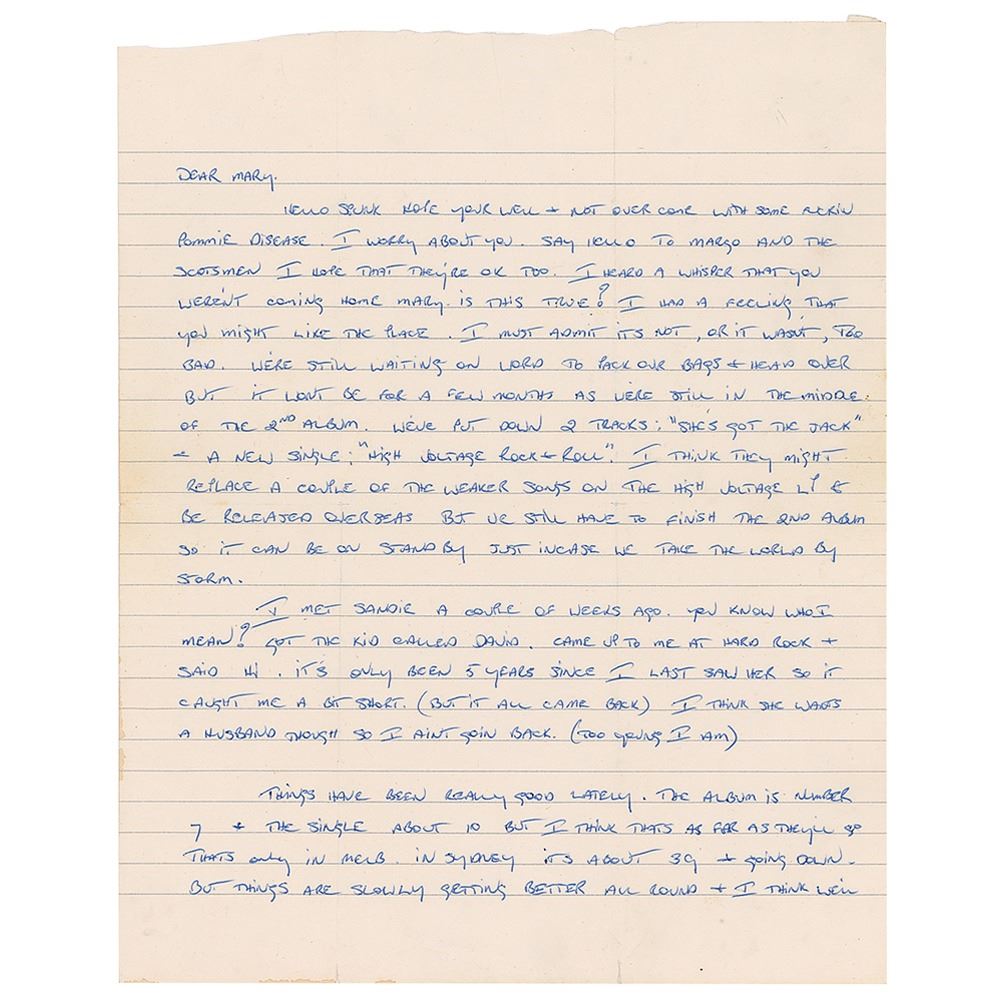 DEAR MARY.
HELLO SPUNK HOPE YOUR WELL + NOT OVER COME WITH SOME FUCKIN
POMMIE DISEASE. I WORRY ABOUT YOU. SAY HELLO TO MARGO AND THE
SCOTSMEN I HOPE THAT THEY'RE OK TOO. I HEARD A WHISPER THAT YOU
WEREN'T COMING HOME MARY. IS THIS TRUE? I HAD A FEELING THAT
YOU MIGHT LIKE THE PLACE. I MUST ADMIT ITS NOT, OR IT WASN'T, TOO
BAD. WE'RE STILL WAITING ON WORD TO PACK OUR BAGS + HEAD OVER
BUT IT WONT BE FOR A FEW MONTHS AS WE'RE STILL IN THE MIDDLE
OF THE 2ND ALBUM. WE'VE PUT DOWN 2 TRACKS; "SHE'S GOT THE JACK"
+ A NEW SINGLE; "HIGH VOLTAGE ROCK + ROLL". I THINK THEY MIGHT
REPLACE A COUPLE OF THE WEAKER SONGS ON THE HIGH VOLTAGE LP &
BE RELEASED OVERSEAS BUT WE STILL HAVE TO FINISH THE 2ND ALBUM
SO IT CAN BE ON STAND BY JUST INCASE WE TAKE THE WORLD BY
STORM.
I MET SANDIE A COUPLE OF WEEKS AGO. YOU KNOW WHO I
MEAN? GOT THE KID CALLED DAVID. CAME UP TO ME AT HARD ROCK +
SAID HI. IT'S ONLY BEEN 5 YEARS SINCE I LAST SAW HER SO IT
CAUGHT ME A BIT SHORT. (BUT IT ALL CAME BACK) I THINK SHE WANTS
A HUSBAND THOUGH SO I AINT GOIN BACK. (TOO YOUNG I AM)
THINGS HAVE BEEN REALLY GOOD LATELY. THE ALBUM IS NUMBER
7 + THE SINGLE ABOUT 10 BUT I THINK THATS AS FAR AS THEY'LL GO
THATS ONLY IN MELB. IN SYDNEY IT'S ABOUT 39 + GOING DOWN.
BUT THINGS ARE SLOWLY GETTING BETTER ALL ROUND + I THINK WE'LL